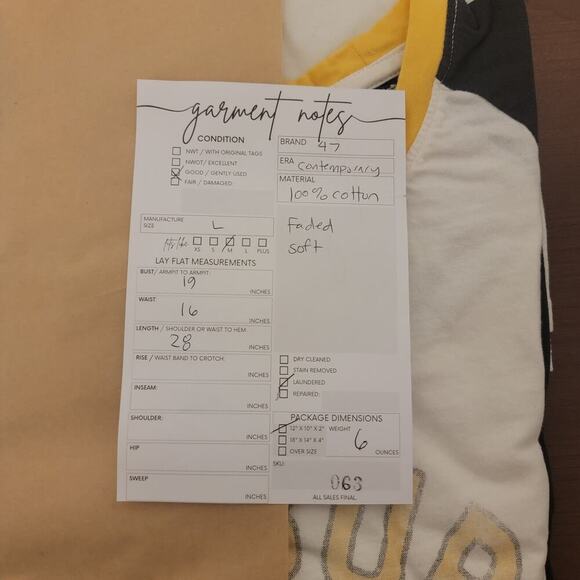 garment notes
CONDITION
NWT / WITH ORIGINAL TAGS
NWOT / EXCELLENT
GOOD / GENTLY USED
FAIR / DAMAGED:
BRAND 47
ERA contemporary
MATERIAL
100% cotton
Faded
soft
MANUFACTURE
SIZE L
fits like
XS S M L PLUS
LAY FLAT MEASUREMENTS
BUST/ ARMPIT TO ARMPIT:
19
INCHES
WAIST:
16
INCHES
LENGTH / SHOULDER OR WAIST TO HEM:
28
INCHES
RISE / WAIST BAND TO CROTCH:
INCHES
INSEAM:
INCHES
SHOULDER:
INCHES
HIP
INCHES
SWEEP
INCHES
DRY CLEANED
STAIN REMOVED
LAUNDERED
REPAIRED:
PACKAGE DIMENSIONS
12" X 10" X 2" WEIGHT
18" X 14" X 4" 6
OVER SIZE OUNCES
SKU:
063
ALL SALES FINAL.